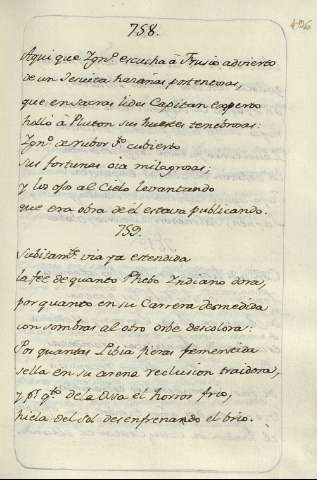 758.
Aqui que Ign.º escucha à Trusio advierto
de un Jesuita hazañas portentosas,
que en sacras lides Capitan experto
holló à Pluton sus huestes tenebrosas:
Ign.º de rubor S.to cubierto
sus fortunas oia milagrosas;
y los ojos al Cielo levantando
que era obra de él estava publicando.
759.
Subitam.te via ya estendida
la feé de quanto Phebo Indiano dora,
por quanto en su Carrera desmedida
con sombras al otro orbe descolora:
Por quantas Libia fieras
sella en su arena reclusion traidora,
y p.r q.to de la Osa el horror frio,
hiela del Sol desenfrenando el brio.